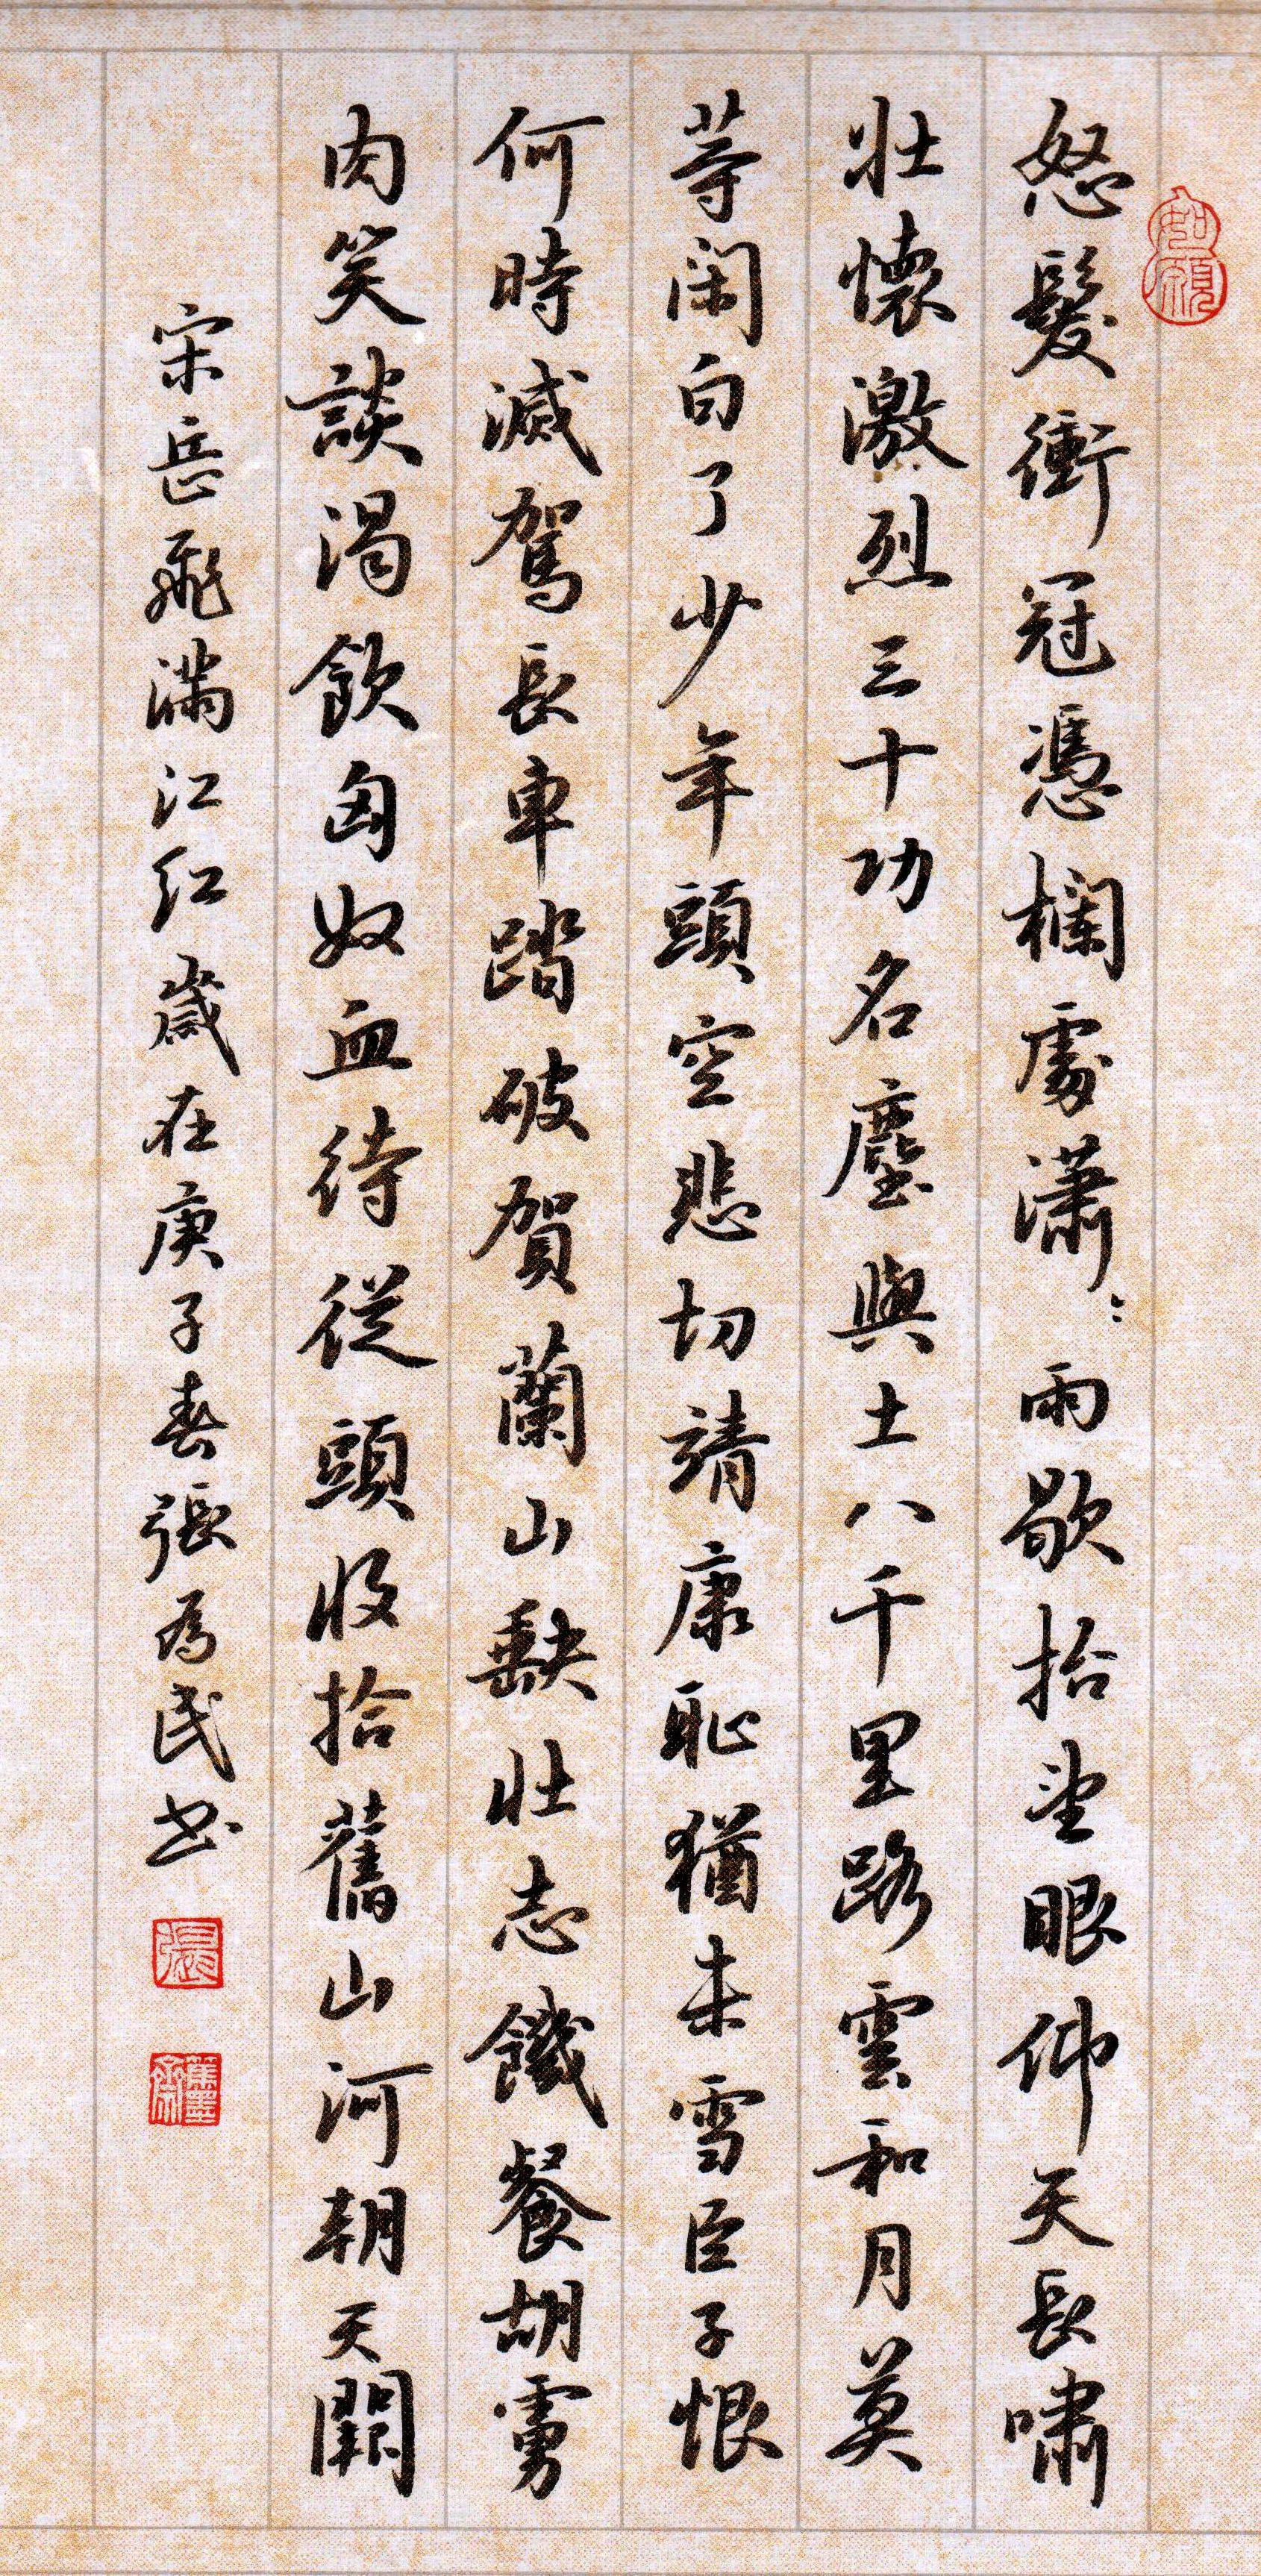 如願
怒髮衝冠憑欄處瀟〻雨歇抬望眼仰天長嘯
壯懷激烈三十功名塵與土八千里路雲和月莫
等閑白了少年頭空悲切靖康恥猶未雪臣子恨
何時滅駕長車踏破賀蘭山缺壯志饑餐胡虜
肉笑談渴飲匈奴血待從頭收拾舊山河朝天闕
宋岳飛滿江紅歲在庚子春張為民書
張